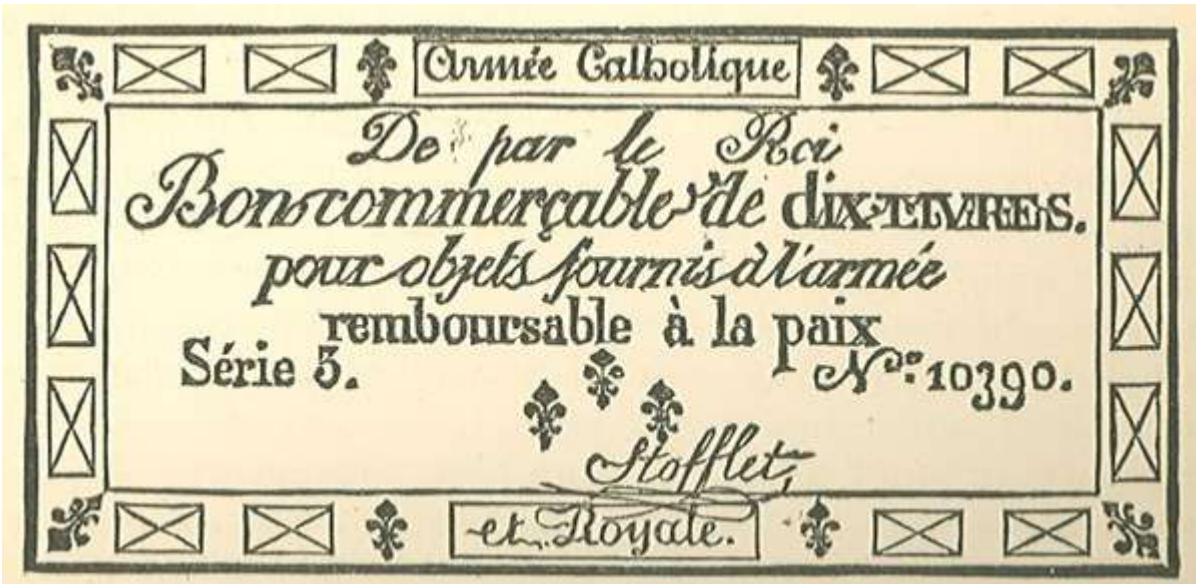 Armée Catholique
De par le Roi
Bon commerçable de dix LIVRES.
pour objets fournis à l'armée
remboursable à la paix
Série 3. Nº: 10390.
Stofflet,
et Royale.